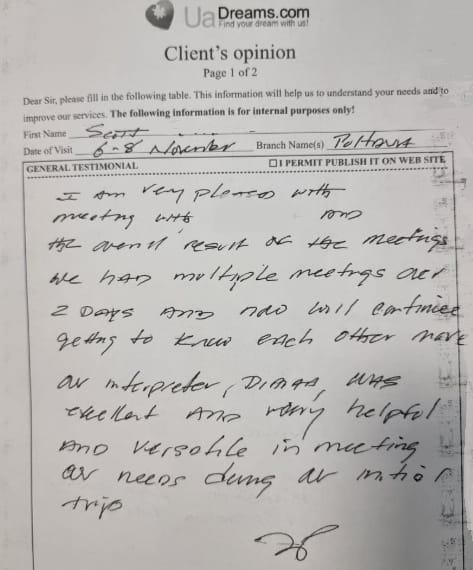 UaDreams.com
Find your dream with us!
Client's opinion
Page 1 of 2
Dear Sir, please fill in the following table. This information will help us to understand your needs and to
improve our services. The following information is for internal purposes only!
First Name Scott
Date of Visit 6-8 November Branch Name(s) Poltava
GENERAL TESTIMONIAL ☐ I PERMIT PUBLISH IT ON WEB SITE
I am very pleased with
meeting with and
the overall result of the meetings
we had multiple meetings over
2 Days and now will continue
getting to know each other more
our interpreter, DIMAA, was
excellent and very helpful
and versatile in meeting
our needs during our initial
trip